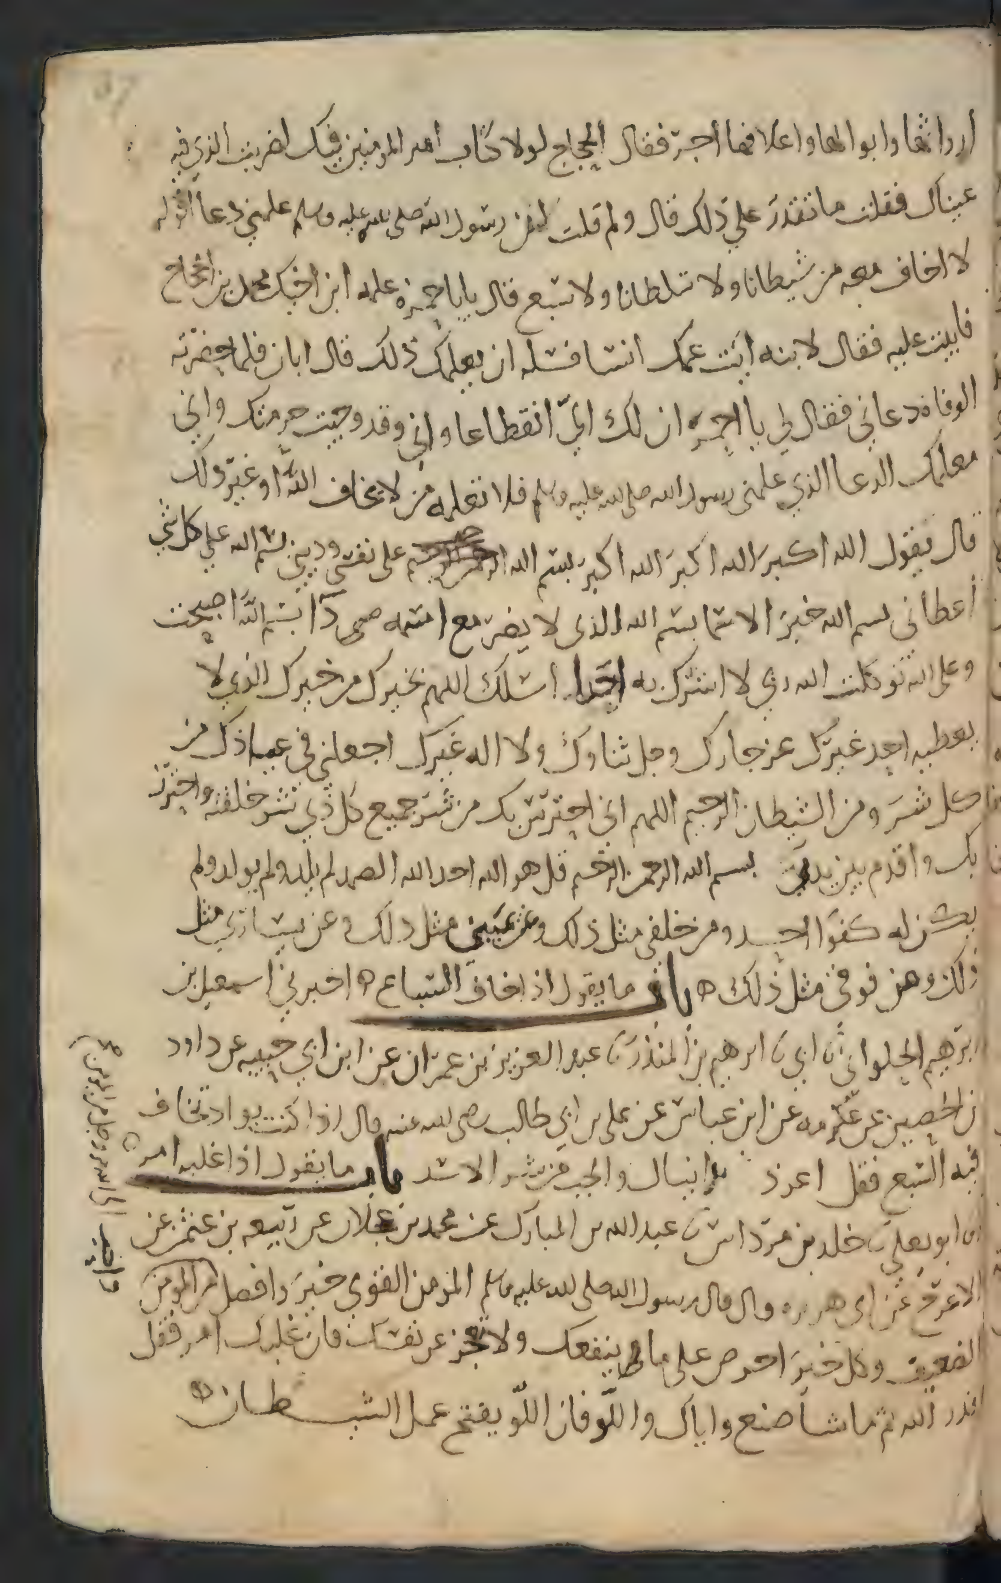 أرواثها وابوالها واعلافها أجر فقال الحجاج لولا كتاب امير المومنين فيك لضربت الذي فيه
عيناك فقلت ما تقدر علي ذلك قال ولم قلت لان رسول الله صلى الله عليه وسلم علمني دعا اقوله
لا اخاف معه من شيطانا ولا سلطانا ولا سبع قال يا با حمزه علمه ابن اخيك محمد بن الحجاج
فابيت عليه فقال لابنه ايت عمك انسا فسله ان يعلمك ذلك قال ابان فلما حضرته
الوفاه دعاني فقال لي يا احمر ان لك الىّ انقطاعا واني وقد وجبت حرمتك واني
معلمك الدعا الذي علمني رسول الله صلى الله عليه وسلم فلا تعلمه من لا يخاف الله او غير ذلك
قال يقول الله اكبر الله اكبر الله اكبر بسم الله على نفسي وديني بسم الله علي كل شي
أعطاني بسم الله خير الاسما بسم الله الذى لا يضر مع اسمه دآ بسم الله اصبحت
وعلى الله توكلت الله ربي لا اشرك به احدا اسلك اللهم بخيرك من خيرك الذي لا
يعطيه احد غيرك عز جارك وجل ثناوك ولا اله غيرك اجعلني في عياذك من
كل شر ومن الشيطان الرجيم اللهم اني احترس بك من شر جميع كل ذي شر خلقته واحترز
بك واقدم بين يدي بسم الله الرحمن الرحيم قل هو الله احد الله الصمد لم يلد ولم يولد ولم
يكن له كفوا احد ومن خلفي مثل ذلك وعن يميني مثل ذلك وعن يساري مثل
ذلك ومن فوقي مثل ذلك ه باب ما يقول اذا خاف السباع ه اخبرني اسمعيل بن
ابرهيم الحلواني ثنا ابي ثنا ابرهيم بن المنذر ثنا عبد العزيز بن عمران عن ابن ابي حبيبه عن داود
بن الحصين عن عكرمه عن ابن عباس عن علي بن ابي طالب رضى الله عنه قال اذا كنت بواد تخاف
فيه السبع فقل اعوذ بدانيال والجب من شر الاسد باب ما يقول اذا غلبه امر ه
انا ابو يعلي ثنا خلد بن مرداس ثنا عبد الله بن المبارك عن محمد بن عجلان عن ربيعه بن عثمن عن
الاعرج عن ابي هريره قال قال رسول الله صلى الله عليه وسلم المومن القوي خير وافضل من المومن
الضعيف وكل خير احرص على ما ينفعك ولا تعجز عن نفسك فان غلبك امر فقل
قدر الله ثم ما شا صنع واياك واللّو فان اللّو يفتح عمل الشيطان ه